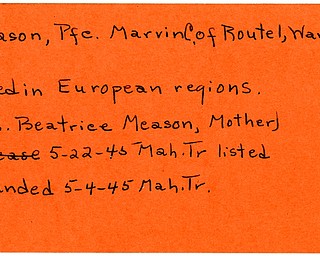 ason, Pfc. Marvin C, of Route 1, Wa
ed in European regions.
. Beatrice Meason, Mother)
ease 5-22-45 Mah. Tr listed
nded 5-4-45 Mah. Tr.